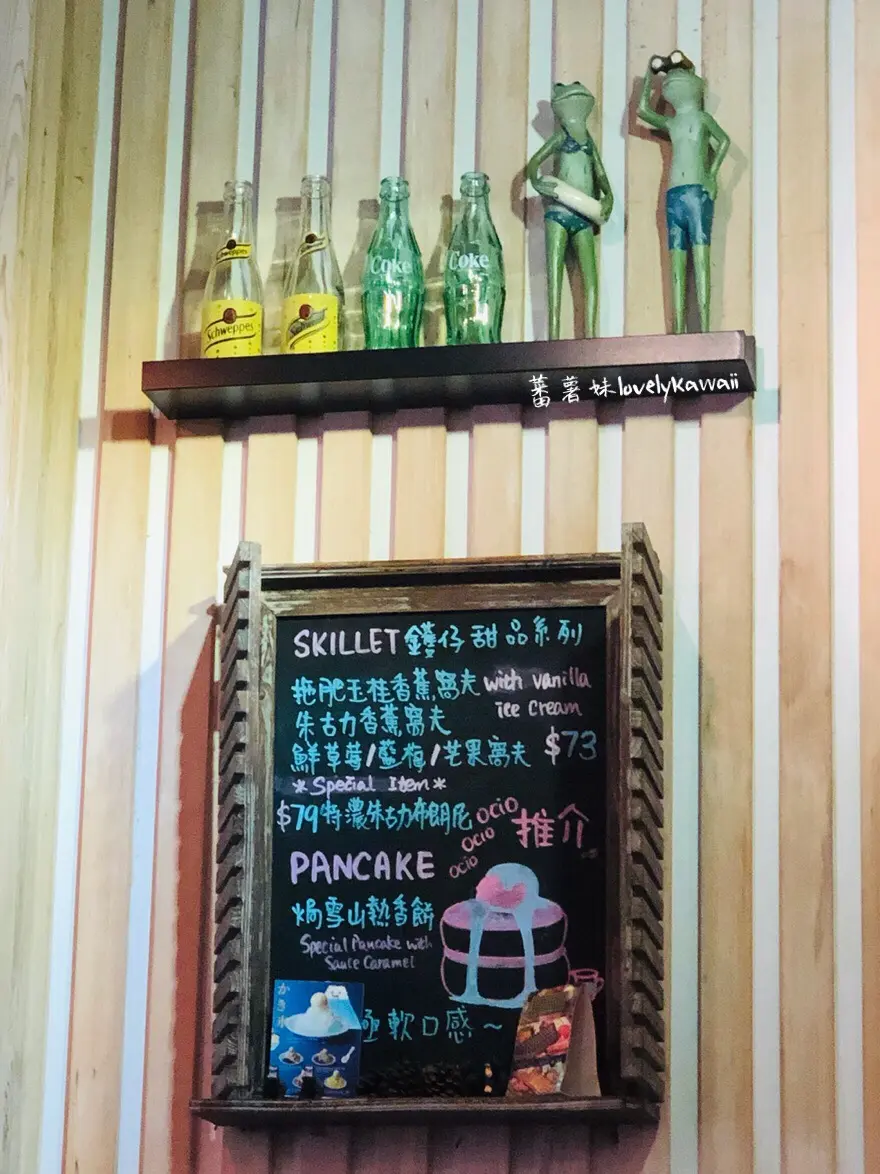 Schweppes
Schweppes
Coke
Coke
蕃薯妹lovelykawaii
SKILLET 鑊仔甜品系列
拖肥玉桂香蕉窩夫 with vanilla
ice cream
朱古力香蕉窩夫
鮮草莓/藍梅/芒果窩夫 $73
*Special Item*
$79特濃朱古力布朗尼
ocio
ocio
ocio
推介
PANCAKE
焗雪山熱香餅
Special Pancake with
Sauce Caramel
極軟口感~
かき氷